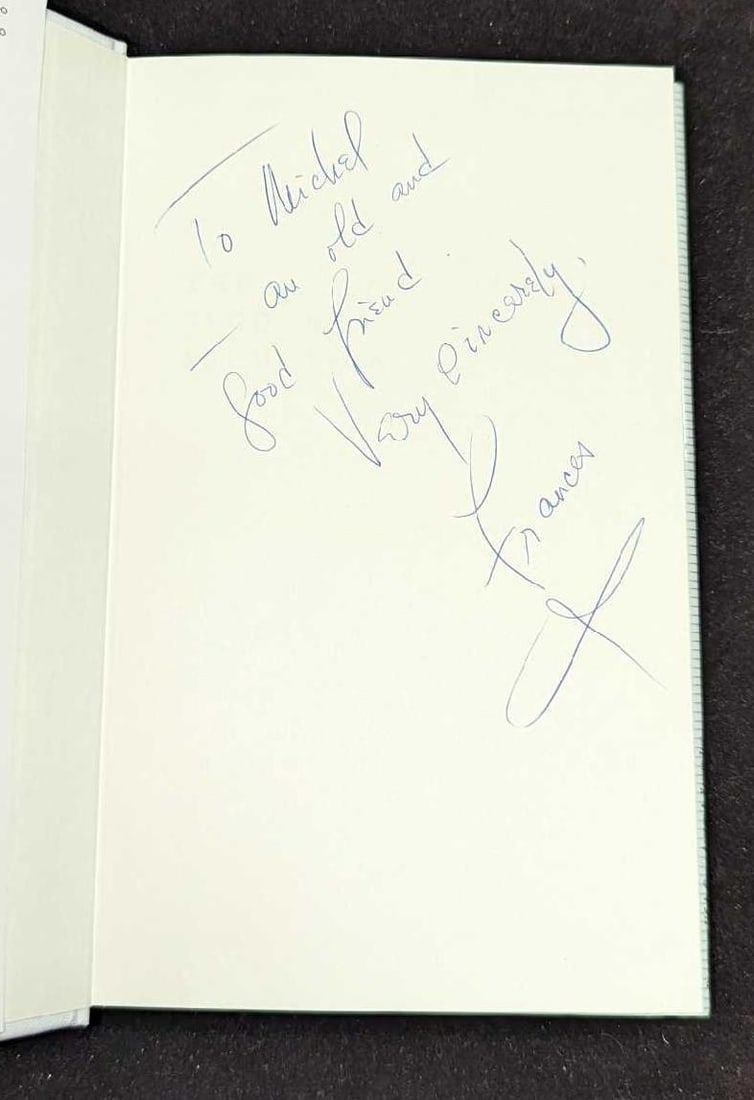 To Michel
an old and
good friend.
Very Sincerely.
Frances